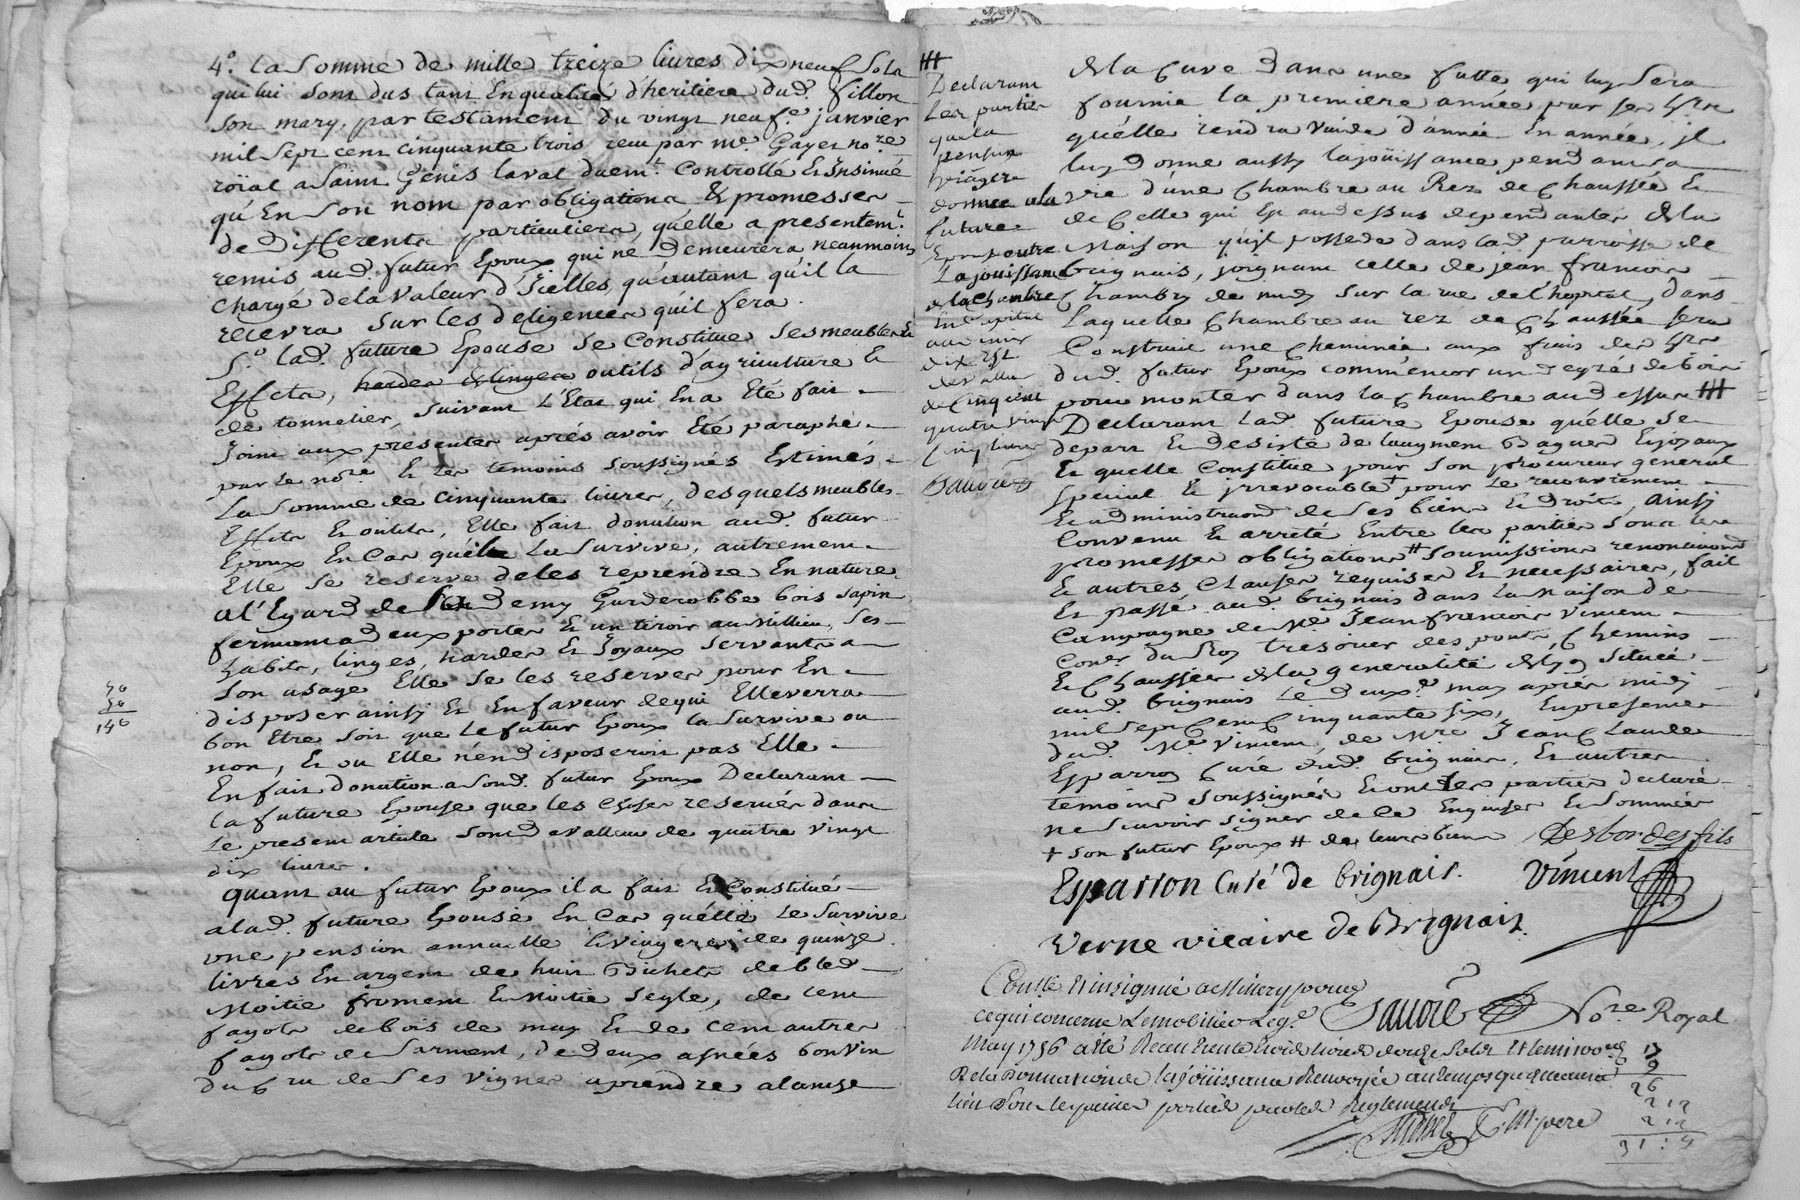 4°. la Somme de mille treize livres dix neuf Sols
qui lui sont dus tant En qualité d'heritiere dud. fillon
son mary, par testament du vingt neuf.e janvier
mil Sept cent cinquante trois reçu par me. Gayet no.re
roïal a Saint Genis laval duem.t Controllé Et Insinué
qu'En Son nom par obligations & promesses
de differents particuliers, qu'elle a presentem.t
remis aud. futur Epoux qui ne demeurera neanmoins
chargé de la Valeur d'Jcelles, qu'autant qu'il la
recevra sur les deligences qu'il fera.
5°. lad. future Epouse se Constitue ses meubles Et
Effets, hardes & linges outils d'agriculture &
de tonnelier, suivant L'Etat qui En a Eté fait
Joint aux presentes aprés avoir Eté paraphé
par le no.re Et les temoins soussignés Estimés
La Somme de cinquante livres, desquels meubles
Effets Et outils, Elle fait donation aud. futur
Epoux En Cas qu'il La Survive, autrement
Elle se reserve de les reprendre En nature
a l'Egard de demy Garderobbe bois sapin
fermant a deux portes Et un tiroir au millieu, Ses
habits, linges, hardes Et Joyaux servants a
Son usage Elle se les reserve pour En
disposer ainsy Et En faveur de qui Elle verra
bon Etre soit que le futur Epoux la Survive ou
non, Et ou Elle n'en disposeroit pas Elle
En fait donation a Sond. futur Epoux Declarant
la future Epouse que les choses reservées dans
le present article sont de valleur de quatre vingt
dix livres.
quant au futur Epoux il a fait Et Constitué
a lad. future Epouse En Cas qu'elle Le Survive
une pension annuelle & viagere de quinze
livres En argent de huit Bichets de bled
Moitié froment Et Moitié Segle, de cent
fagots de bois de may Et de Cent autres
fagots de Sarment, de deux asnées bon vin
du cru de Ses vignes a prendre a l'anche
50
90
140
##
Declarant
Les parties
que la
pension
viagere
donnée a la
future
Epouse outre
La jouissance
de la Chambre
En Capital
dix
de valleur
de Cinq Cent
quatre vingt
Cinq livres
Sauore
de la Cuve dans une futte qui luy Sera
fournie la premiere année par ses hrs
qu'elle rendra vuide d'année En année, jl
luy donne aussy la joüissance pendant sa
vie d'une Chambre au Rez de Chaussée Et
de Celle qui Est au dessus dependantes de la
Maison qu'il possede dans lad. parroisse de
brignais, joignant celle de jean francois
Chambry de midy Sur la rue de l'hopital, dans
Laquelle Chambre au rez de Chaussée sera
Construit une Cheminée aux frais des hrs
dud. futur Epoux un degré de bois
pour monter dans la Chambre au dessus ##
Declarant Lad. future Epouse qu'elle se
depart Et desiste de l'augment Bagues Et joyaux
Et quelle Constitue pour Son procureur general
special Et jrrevocable + pour Le recouvrement
Et administraon de Ses biens Et droits, ainsy
Convenu Et arreté Entre les parties sous les
promesses obligations # soumissions renonciaons
Et autres Clauses requises Et necessaires, fait
Et passé aud. brignais dans La Maison de
Campagne de Me. Jean francois Vincent
Coner du Roy tresorier des ponts, Chemins
Et Chaussées de la generalité de Lyon située
aud. brignais Le deux.e may apres midy
mil Sept Cent Cinquante Six, En presence
dud. Me. Vincent, de Mre Jean Claude
Esparron Curé dud. brignais, Et autres
temoins Soussignés Et ont les parties declaré
ne Sçavoir signer de ce Enquises Et Sommées
+ son futur Epoux # de leurs biens Desbordes fils
Esparron Curé de brignais. Vincent
Verne vicaire De Brignais.
Contlé Et insinué
ce qui concerne Le mobilier Le 9.e Sauore No.re Royal
May 1756 a eté Receu trente livres douze Sols
Et la Donnation de la Joüissance Renvoyée au temps
lieu Pour les parties Reglements
17
9
26
2 12
2 12
31 : 4